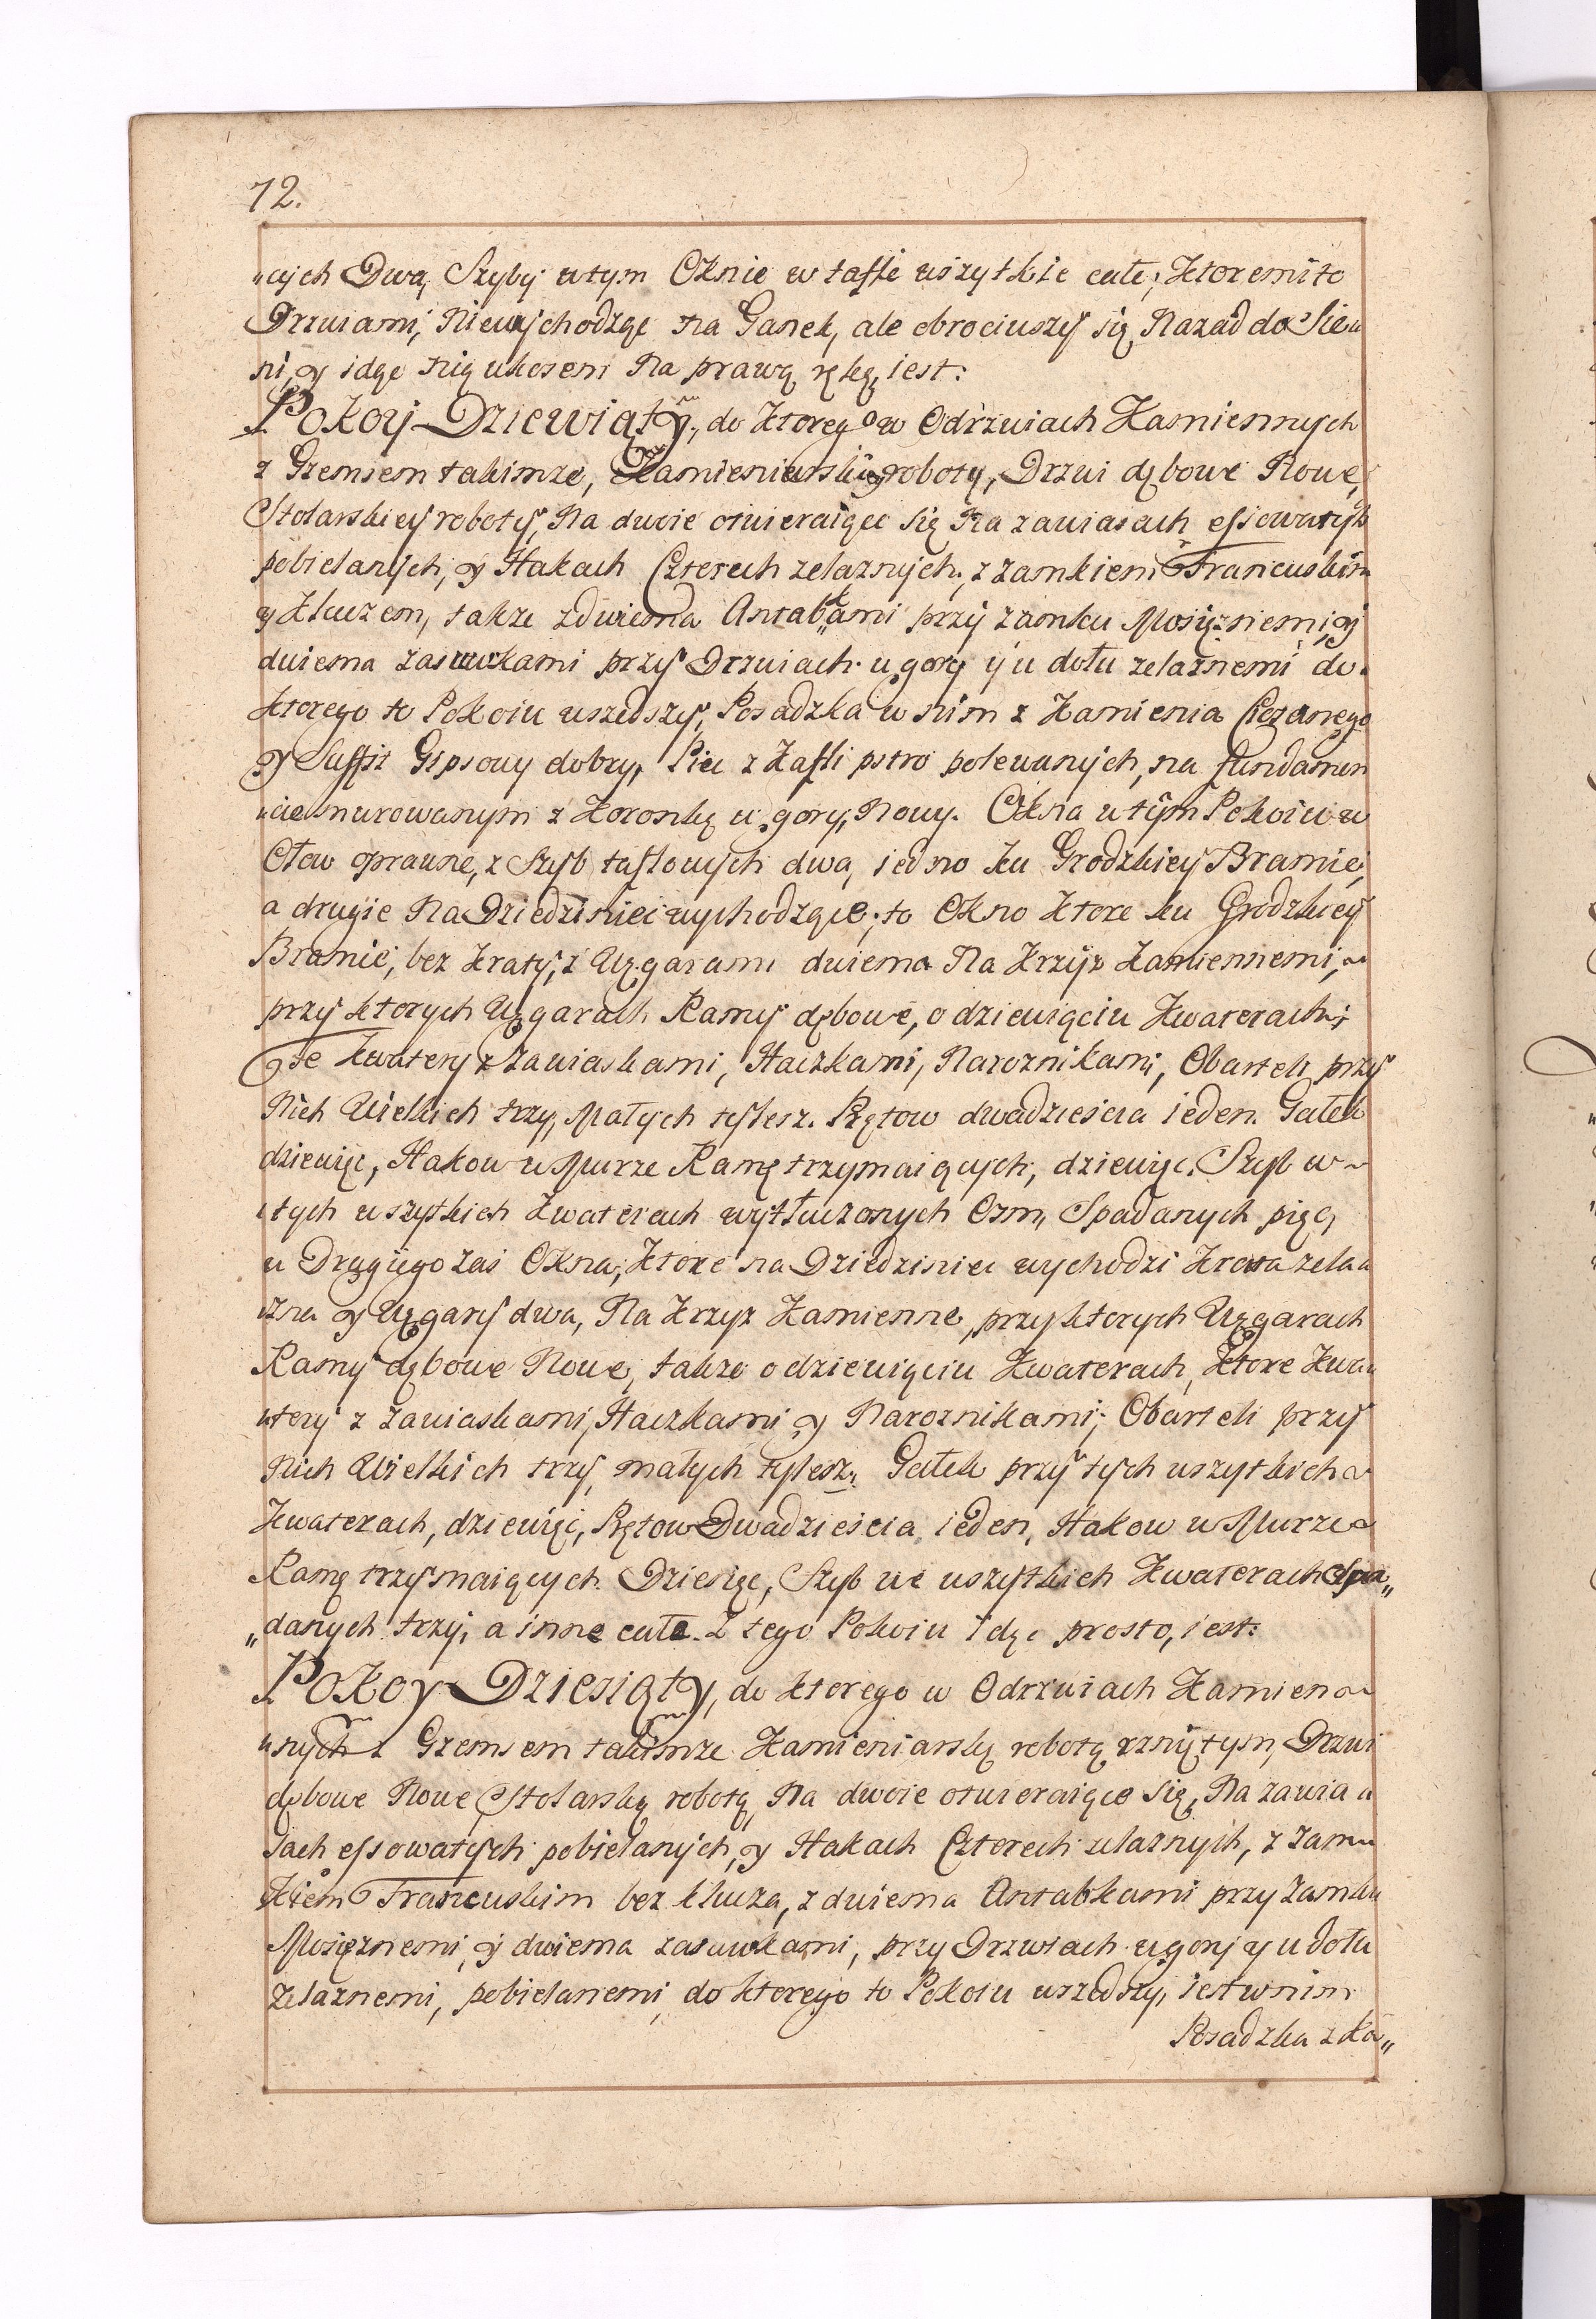 72.
„cych Dwa, Szyby wtym Oknie w tafle wszytkie całe; Ktoremi to
Drzwiami, Niewychodząc na Ganek, ale obrociwszy się Nazad do Sie„
ni, y idąc nią ukosem Na prawą rękę, iest:
Pokoy Dziewiąty, do Ktorego w Odrzwiach Kamiennych
z Gzemsem takimze, Kamieniarskiey roboty, Drzwi dębowe Nowe,
Stolarskiey roboty, Na dwoie otwieraiące się Na zawiasach essowatych
pobielanych, y Hakach Czterech zelaznych, z zamkiem Francuskim
y Kluczem, takze zdwiema Antabkami przy zamku Mosięznemi, y
dwiema zasuwkami przy Drzwiach u gory y u dołu zelaznemi do
ktorego to Pokoiu wszedszy, Posadzka w nim z Kamienia Ciosanego
y Suffit Gipsowy dobry, Piec z Kafli pstro polewanych, na fundamen
„cie murowanym z Koronką u gory, Nowy. Okna w tym Pokoiu w
Ołow oprawne, z Szyb taflowych dwa, iedno ku Grodzkiey Bramie,
a drugie Na Dziedziniec wychodzące; to Okno Ktore ku Grodzkiey
Bramie, bez Kraty, z Węgarami dwiema Na Krzyz Kamiennemi,
przy ktorych Węgarach Ramy dębowe, o dziewięciu Kwaterach;
te kwatery z Zawiaskami, Haczkami, Naroznikami, Obartek przy
Nich Wielkich trzy, Małych tylesz. Prętow dwadziescia ieden. Gałek
dziewięc, Hakow w Murze Ramę trzymaiących, dziewięc. Szyb w
„tych wszytkich Kwaterach wytłuczonych Osm, Spadanych pięc,
u Drugiego zas Okna, Ktore na Dziedziniec wychodzi Krata zela„
„zna y Węgary dwa, Na Krzyz Kamienne, przy ktorych Węgarach
Ramy dębowe Nowe, takze o dziewięciu Kwaterach, Ktore Kwa„
„tery z Zawiaskami, Haczkami y Naroznikami; Obartek przy
Nich Wielkich trzy, małych tylesz. Gałek przy tych wszytkich
Kwaterach, dziewięc, Prętow Dwadziescia ieden, Hakow w Murze
Ramę trzymaiących Dziesięc, Szyb we wszytkich Kwaterach Spa„
„danych trzy, a inne całe. Z tego Pokoiu Idąc prosto, iest:
Pokoy Dziesiąty, do ktorego w Odrzwiach Kamien
„nych z Gzemsem takimze Kamieniarską robotą rzniętym, Drzwi
dębowe Nowe, Stolarską robotą, Na dwoie otwieraiące się, Na zawia„
sach essowatych pobielanych, y Hakach Czterech zelaznych, z zam„
„kiem Francuskim bez klucza, z dwiema Antabkami przy Zamku
Mosięznemi, y dwiema zasuwkami, przy Drzwiach u gory y u dołu
Zelaznemi, pobielanemi, do ktorego to Pokoiu wszedszy, iest wnim
Posadzka z Ka„